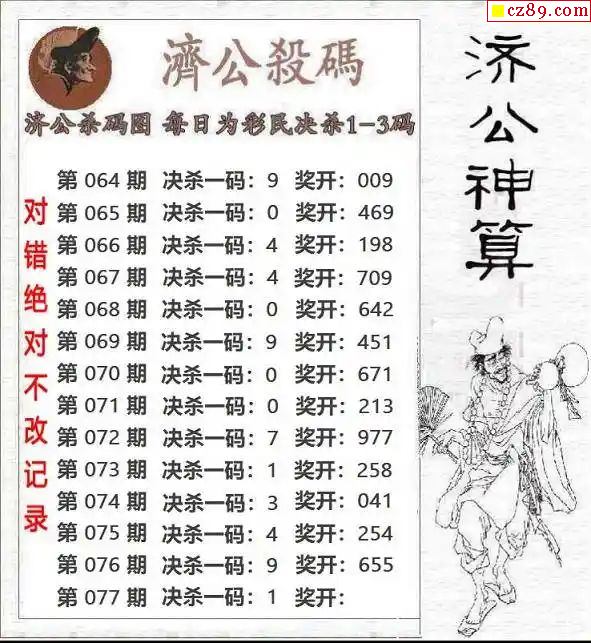 cz89.com
濟公殺碼
济公杀码图 每日为彩民决杀1-3码
第 064 期 决杀一码: 9 奖开: 009
第 065 期 决杀一码: 0 奖开: 469
第 066 期 决杀一码: 4 奖开: 198
第 067 期 决杀一码: 4 奖开: 709
第 068 期 决杀一码: 0 奖开: 642
第 069 期 决杀一码: 9 奖开: 451
第 070 期 决杀一码: 0 奖开: 671
第 071 期 决杀一码: 0 奖开: 213
第 072 期 决杀一码: 7 奖开: 977
第 073 期 决杀一码: 1 奖开: 258
第 074 期 决杀一码: 3 奖开: 041
第 075 期 决杀一码: 4 奖开: 254
第 076 期 决杀一码: 9 奖开: 655
第 077 期 决杀一码: 1 奖开:
对错绝对不改记录
济公神算